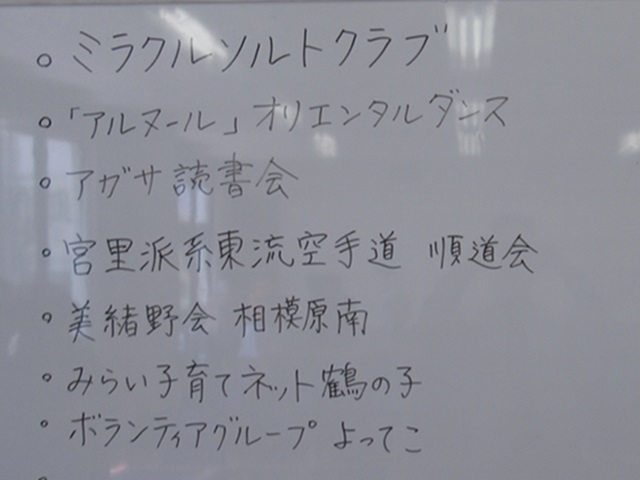 。ミラクルソルトクラブ
。「アルヌール」オリエンタルダンス
。アガサ読書会
。宮里派系東流空手道 順道会
。美緒野会 相模原南
。みらい子育てネット鶴の子
。ボランティアグループ よってこ